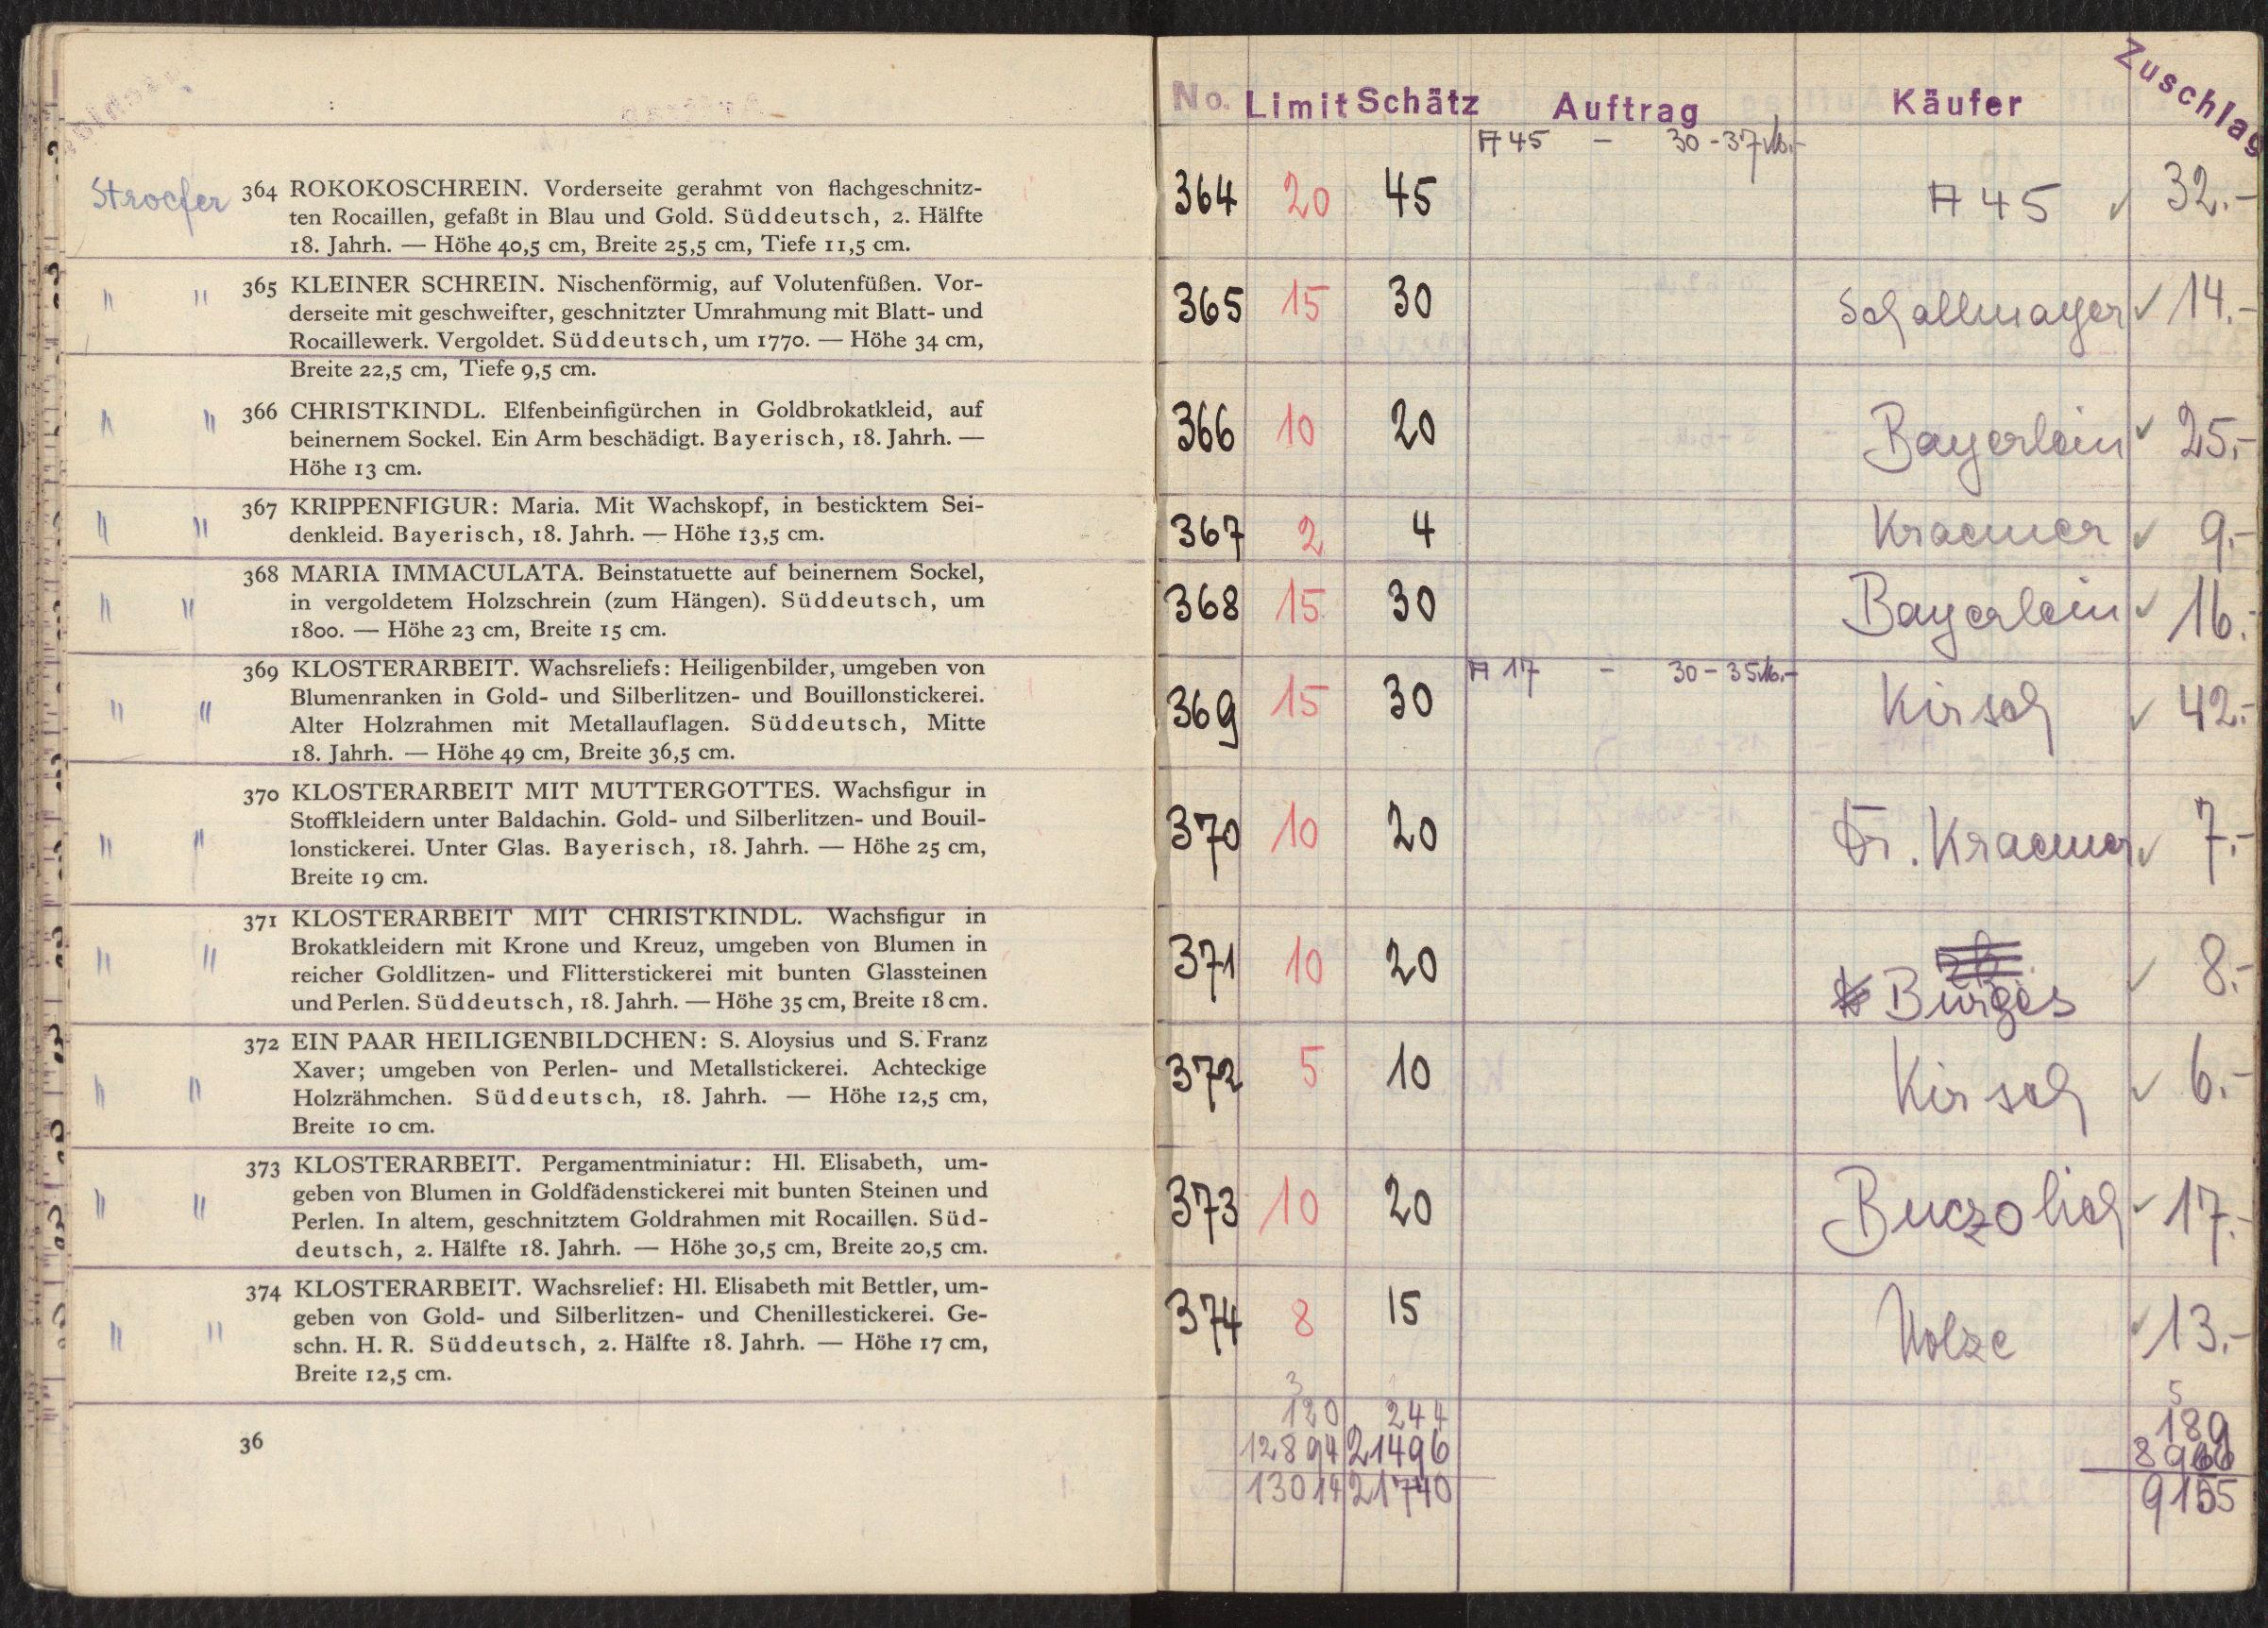 Stroefer 364 ROKOKOSCHREIN. Vorderseite gerahmt von flachgeschnitz-
ten Rocaillen, gefaßt in Blau und Gold. Süddeutsch, 2. Hälfte
18. Jahrh. — Höhe 40,5 cm, Breite 25,5 cm, Tiefe 11,5 cm.
" " 365 KLEINER SCHREIN. Nischenförmig, auf Volutenfüßen. Vor-
derseite mit geschweifter, geschnitzter Umrahmung mit Blatt- und
Rocaillewerk. Vergoldet. Süddeutsch, um 1770. — Höhe 34 cm,
Breite 22,5 cm, Tiefe 9,5 cm.
" " 366 CHRISTKINDL. Elfenbeinfigürchen in Goldbrokatkleid, auf
beinernem Sockel. Ein Arm beschädigt. Bayerisch, 18. Jahrh. —
Höhe 13 cm.
" " 367 KRIPPENFIGUR: Maria. Mit Wachskopf, in besticktem Sei-
denkleid. Bayerisch, 18. Jahrh. — Höhe 13,5 cm.
" " 368 MARIA IMMACULATA. Beinstatuette auf beinernem Sockel,
in vergoldetem Holzschrein (zum Hängen). Süddeutsch, um
1800. — Höhe 23 cm, Breite 15 cm.
" " 369 KLOSTERARBEIT. Wachsreliefs: Heiligenbilder, umgeben von
Blumenranken in Gold- und Silberlitzen- und Bouillonstickerei.
Alter Holzrahmen mit Metallauflagen. Süddeutsch, Mitte
18. Jahrh. — Höhe 49 cm, Breite 36,5 cm.
" " 370 KLOSTERARBEIT MIT MUTTERGOTTES. Wachsfigur in
Stoffkleidern unter Baldachin. Gold- und Silberlitzen- und Bouil-
lonstickerei. Unter Glas. Bayerisch, 18. Jahrh. — Höhe 25 cm,
Breite 19 cm.
" " 371 KLOSTERARBEIT MIT CHRISTKINDL. Wachsfigur in
Brokatkleidern mit Krone und Kreuz, umgeben von Blumen in
reicher Goldlitzen- und Flitterstickerei mit bunten Glassteinen
und Perlen. Süddeutsch, 18. Jahrh. — Höhe 35 cm, Breite 18 cm.
" " 372 EIN PAAR HEILIGENBILDCHEN: S. Aloysius und S. Franz
Xaver; umgeben von Perlen- und Metallstickerei. Achteckige
Holzrähmchen. Süddeutsch, 18. Jahrh. — Höhe 12,5 cm,
Breite 10 cm.
" " 373 KLOSTERARBEIT. Pergamentminiatur: Hl. Elisabeth, um-
geben von Blumen in Goldfädenstickerei mit bunten Steinen und
Perlen. In altem, geschnitztem Goldrahmen mit Rocaillen. Süd-
deutsch, 2. Hälfte 18. Jahrh. — Höhe 30,5 cm, Breite 20,5 cm.
" " 374 KLOSTERARBEIT. Wachsrelief: Hl. Elisabeth mit Bettler, um-
geben von Gold- und Silberlitzen- und Chenillestickerei. Ge-
schn. H. R. Süddeutsch, 2. Hälfte 18. Jahrh. — Höhe 17 cm,
Breite 12,5 cm.
36
No. Limit Schätz Auftrag Käufer Zuschlag
A 45 – 30-37 M.-
364 20 45 A 45 ✓ 32.-
365 15 30 Schallmayer ✓ 14.-
366 10 20 Bayerlein ✓ 25.-
367 2 4 Kraemer ✓ 9.-
368 15 30 Bayerlein ✓ 16.-
A 17 – 30-35 M.-
369 15 30 Kirsch ✓ 42.-
370 10 20 Fr. Kraemer ✓ 7.-
371 10 20 Bürges ✓ 8.-
372 5 10 Kirsch ✓ 6.-
373 10 20 Buczolich ✓ 17.-
374 8 15 Holze ✓ 13.-
3 5
120 244 189
12894 21496 8966
13014 21740 9155